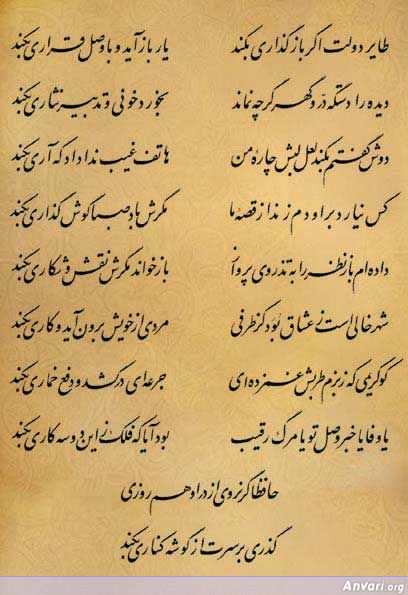 طایر دولت اگر باز گذاری بکند یار باز آید و با وصل قراری بکند
دیده را دستگه در و گهر گرچه نماند بخورد خونی و تدبیر نثاری بکند
دوش گفتم بکند لعل لبش چاره من هاتف غیب ندا داد که آری بکند
کس نیارد بر او دم زند از قصه ما مگرش باد صبا گوش گذاری بکند
داده ام باز نظر را به تذروی پرواز باز خواند مگرش نقش و شکاری بکند
شهر خالی است ز عشاق بود کز طرفی مردی از خویش برون آید و کاری بکند
کو کریمی که ز بزم طربش غمزده ای جرعه ای درکشد و دفع خماری بکند
یا وفا یا خبر وصل تو یا مرگ رقیب بود آیا که فلک زین دو سه کاری بکند
حافظا گر نروی از در او هم روزی
گذری بر سرت از گوشه کناری بکند
Anvari.org